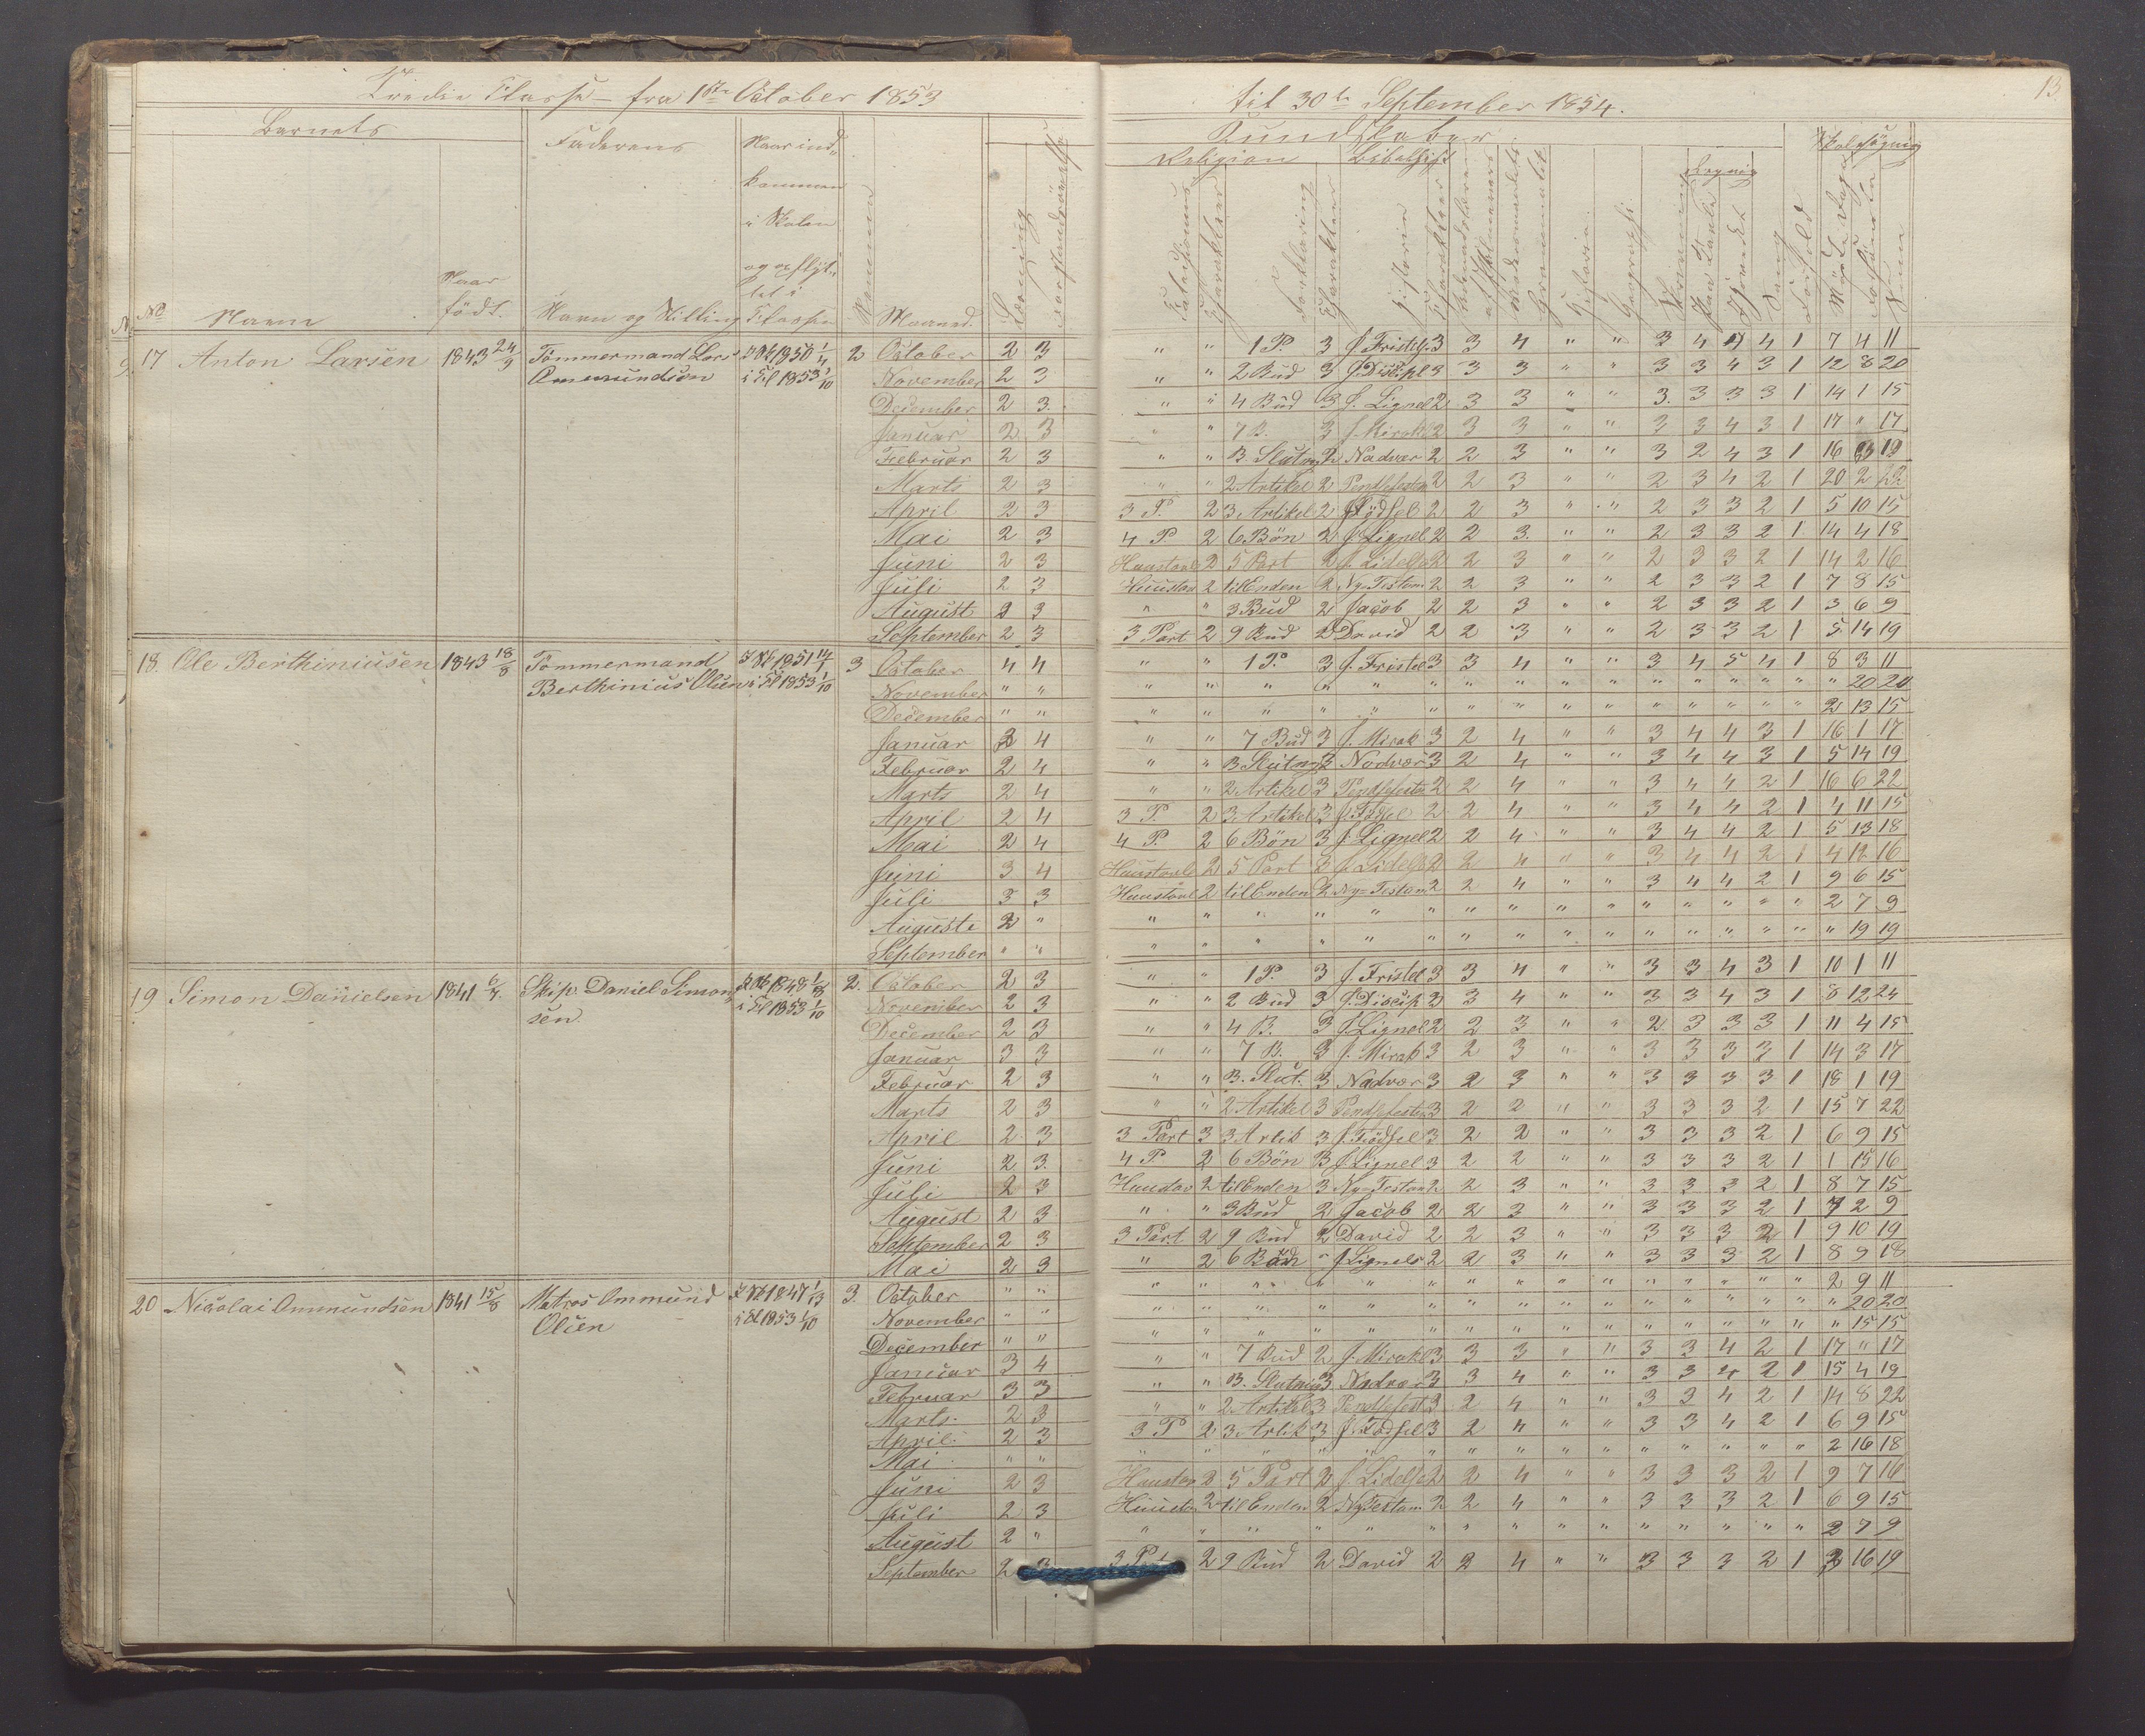 Tredie Classe – fra 1ste October 1853
til 30te September 1854.
13
Barnets
Faderens
Naar ind-
kommen
i Skolen
og opflyt-
tet i
Classen
No
Navn
Naar
født.
Navn og Stilling
Maaned.
Kundskaber
Skolesøgning
Religion
Bibelhist
Regning
17 Anton Larsen 1843 24/9 Tømmermand Lars 1850 1/4 2 October 2 3 " " 1 P. 3 J. Fristels. 3 3 4 " " 3 4 4 4 1 7 4 11
Ommundsen i Cl 1853 1/10 November 2 3 " " 2 Bud 3 J. Discipl 3 3 3 " " 3 3 4 3 1 12 8 20
December 2 3. " " 4 Bud 3 J. Lignel 2 3 3 " " 3. 3 3 3 1 14 1 15
Januar 2 3 " " 7 B. 3 J. Mirak 2 3 3 " " 3 3 4 3 1 17 " 17
Februar 2 3 " " B. Slutng 2 Nadver 2 2 3 " " 3 2 4 3 1 16 3 19
Marts 2 3 " " 2 Artikel 2 Pendsefesten 2 2 3 " " 2 3 4 2 1 20 2 22
April 2 3 3 P. 2 3 Artikel 2 J Fødsel 2 2 3 " " 2 3 3 2 1 5 10 15
Mai 2 3 4 P 2 6 Bøn 2 J. Lignel 2 2 3. " " 2 3 3 2 1 14 4 18
Juni 2 3 Huustavl 2 5 Part 2 J. Lidelse 2 2 3 " " 2 3 3 2 1 14 2 16
Juli 2 3 Huustav 2 til Enden 2 Ny-Testam 2 2 3 " " 2 3 3 2 1 7 8 15
August 2 3 " " 3 Bud 2 Jacob 2 2 3 " " 2 3 3 2 1 3 6 9
September 2 3 3 Part 2 9 Bud 2 David 2 2 3 " " 2 3 3 2 1 5 14 19
18. Ole Berthiniusen 1843 18/8 Tømmermand 1851 14/1 3 October 4 4 " " 1 P. 3 J. Fristel 3 3 4 " " 3 4 5 4 1 8 3 11
Berthinius Olsen i Cl 1853 1/10 November " " " " " " " " " " " " " " " " " " 20 20
December " " " " " " " " " " " " " " " " " 2 13 15
Januar 3 4 " " 7 Bud 3 J. Mirak 3 2 4 " " 3 4 4 3 1 16 1 17
Februar 2 4 " " B Slutng 3 Nadver 3 2 4 " " 3 4 4 3 1 5 14 19
Marts 2 4 " " 2 Artikel 3 Pendsefeste 2 2 4 " " 3 4 4 2 1 16 6 22
April 2 4 3 P. 2 3 Artikel 3 J. Fødsel 2 2 4 " " 3 4 4 2 1 4 11 15
Mai 2 4 4 P. 2 6 Bøn 3 J. Lignel 2 2 4 " " 3 4 4 2 1 5 13 18
Juni 3 4 Huustavle 2 5 Part 3 J. Lidelse 2 2 4 " " 3 4 4 2 1 4 12 16
Juli 3 3 Huustavl 2 til Enden 2 Ny-Testam 2 2 4 " " 3 4 4 2 1 9 6 15
August 2 " " " " " " " " " " " " " " " " 2 7 9
September " " " " " " " " " " " " " " " " " " 19 19
19 Simon Danielsen 1841 6/7. Skip. Daniel Simon- 1848 2. October 2 3 " " 1 P. 3 J. Fristel 3 3 4 " " 3 3 4 3 1 10 1 11
sen i Cl 1853 1/10 November 2 3 " " 2 Bud 3 J. Discip 2 3 4 " " 3 3 4 3 1 8 12 24
December 2 3 " " 4 B. 3 J. Lignel 2 2 3 " " 2 3 3 3 1 11 4 15
Januar 3 3 " " 7 B. 3 J. Mirak 3 2 3 " " 3 3 3 3 1 14 3 17
Februar 2 3 " " B. Slut. 3 Nadver 3 2 3 " " 3 3 3 3 1 18 1 19
Marts 2 3 " " 2 Artikel 3 Pendsefesten 3 2 2 " " 3 3 3 2 1 15 7 22
April 2 3 3 Part 3 3 Artik 3 J. Fødsel 3 2 2 " " 3 3 3 2 1 6 9 15
Juni 2 3. 4 P. 2 6 Bøn 3 J. Lignel 3 2 2 " " 3 3 3 2 1 1 15 16
Juli 2 3 Huustav 2 til Enden 3 Ny-Testam 2 2 3 " " 3 3 3 2 1 8 7 15
August 2 3 " " 3 Bud 2 Jacob 2 2 3 " " 3 3 3 2 1 7 2 9
September 2 3 3 Part 2 9 Bud 2 David 2 2 3 " " 3 3 3 2 1 9 10 19
Mai 2 3 " 2 6 Bøn " J Lignels 2 2 3 " " 3 3 3 2 1 8 9 18
20 Nicolai Ommundsen 1841 15/8 Matros Ommund 1847 3. October " " " " " " " " " " " " " " " " " 2 9 11
Olsen i Cl 1853 1/10 November " " " " " " " " " " " " " " " " " " 20 20
December " " " " " " " " " " " " " " " " " " 15 15
Januar 3 4 " " 7 Bud 2 J. Mirakl 3 3 3 " " 3 3 4 2 1 17 " 17
Februar 3 3 " " B. Slutning 3 Nadver 3 3 4 " " 3 3 4 2 1 15 4 19
Marts. 2 3 " " 2 Artikel 3 Pendsefest 3 2 4 " " 3 3 4 2 1 14 8 22
April. 2 3 3 P 2 3 Artik 3 J. Fødsel 3 2 4 " " 3 3 4 2 1 6 9 15
Mai " " " " " " " " " " " " " " " " " 2 16 18
Juni 2 3 Huustav 2 5 Part 2 J. Lidelse 2 2 4 " " 3 3 3 2 1 9 7 16
Juli 2 3 Huustav 2 til Enden 2 Ny Testam 2 2 4 " " 3 3 3 2 1 6 9 15
August 2 " " " " " " " " " " " " " " " " 2 7 9
September 2 3 3 P 2 9 Bud 2 David 2 2 4 " " 3 3 3 2 1 3 16 19